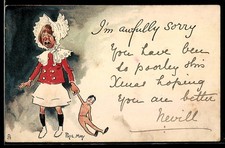 I'm awfully sorry
You have been
so poorley this
Xmas hoping
You are better
Nevill
Phil May